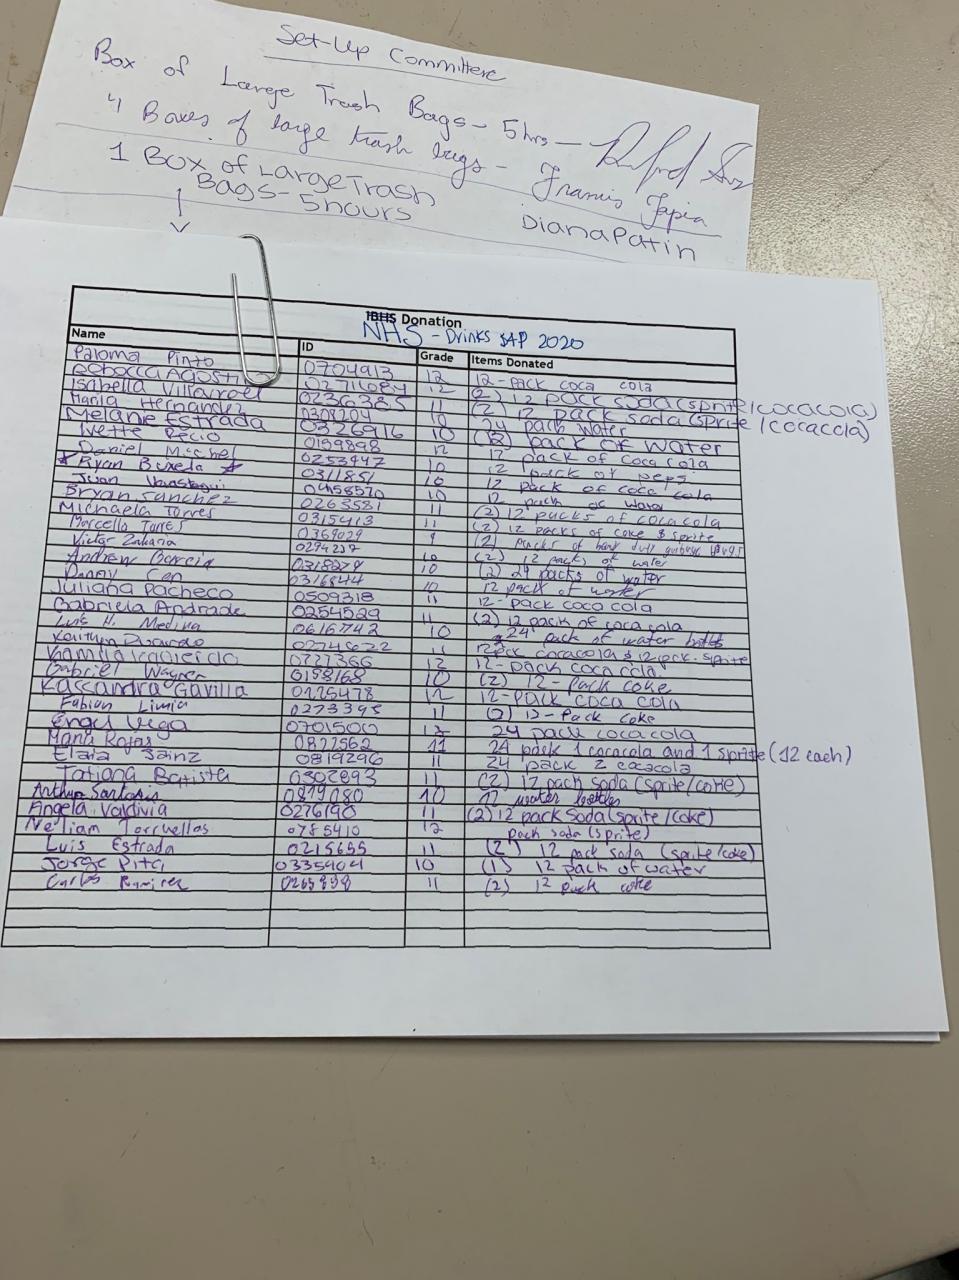 Set-Up Committee
Box of Large Trash Bags - 5 hrs -
4 Boxes of large trash bags - Francis Tapia
1 Box of Large Trash
Bags - 5 hours Diana Patin
IBHS Donation
NHS - Drinks SAP 2020
Name ID Grade Items Donated
Paloma Pinto 0704913 12 12-pack coca cola
Rebecca 12 (2) 12 pack soda (sprite/cocacola)
Isabella Villarroel 0236385 11 (2) 12 pack soda (sprite/cocacola)
Maria Hernandez 0308204 10 24 pack water
Melanie Estrada 0326916 10 pack of water
Ivette Recio 0159898 12 12 pack of coca cola
Daniel Michel 0253447 10 12 pack of pepsi
Ryan 0311851 10 12 pack of coca cola
Juan 0458570 10 12 pack of water
Bryan Sanchez 0263581 11 (2) 12 packs of coca cola
Michaela Torres 0315413 11 (2) 12 packs of coke & sprite
Marcello Torres 0369029 9 (2) packs of
Victor 0294237 10 (2) 12 packs of water
Andrew Garcia 0318279 10 (2) 24 packs of water
Danny 0316844 10 12 pack of water
Juliana Pacheco 0509318 11 12-pack coco cola
Gabriela Andrade 0254529 11 (2) 12 pack of coca cola
Luis H. Medina 0616742 10 24 pack of water
Kaitlyn 11 12pck cocacola & 12 pck. sprite
Kamila Izquierdo 0727366 12 12-pack coca cola
Gabriel Wagner 0158168 10 (2) 12-Pack coke
Kassandra Gavilla 0125478 12 12-pack coca cola
Fabian Limia 0273395 11 (2) 12-Pack coke
Engel Vega 12 24 pack cocacola
Maria Rojas 0822562 11 24 pack 1 cocacola and 1 sprite (12 each)
Elaia Sainz 0819296 11 24 pack 2 cocacola
Tatiana Batista 0302893 11 (2) 12 pack soda (sprite/coke)
Arthur 10 12 water bottles
Angela Valdivia 0276190 11 (2) 12 pack soda (sprite/coke)
0785410 12 pack soda (sprite)
Luis Estrada 0215655 11 (2) 12 pack soda (sprite/coke)
Jorge Pita 0335404 10 (1) 12 pack of water
Carlos Ramirez 11 (2) 12 pack coke